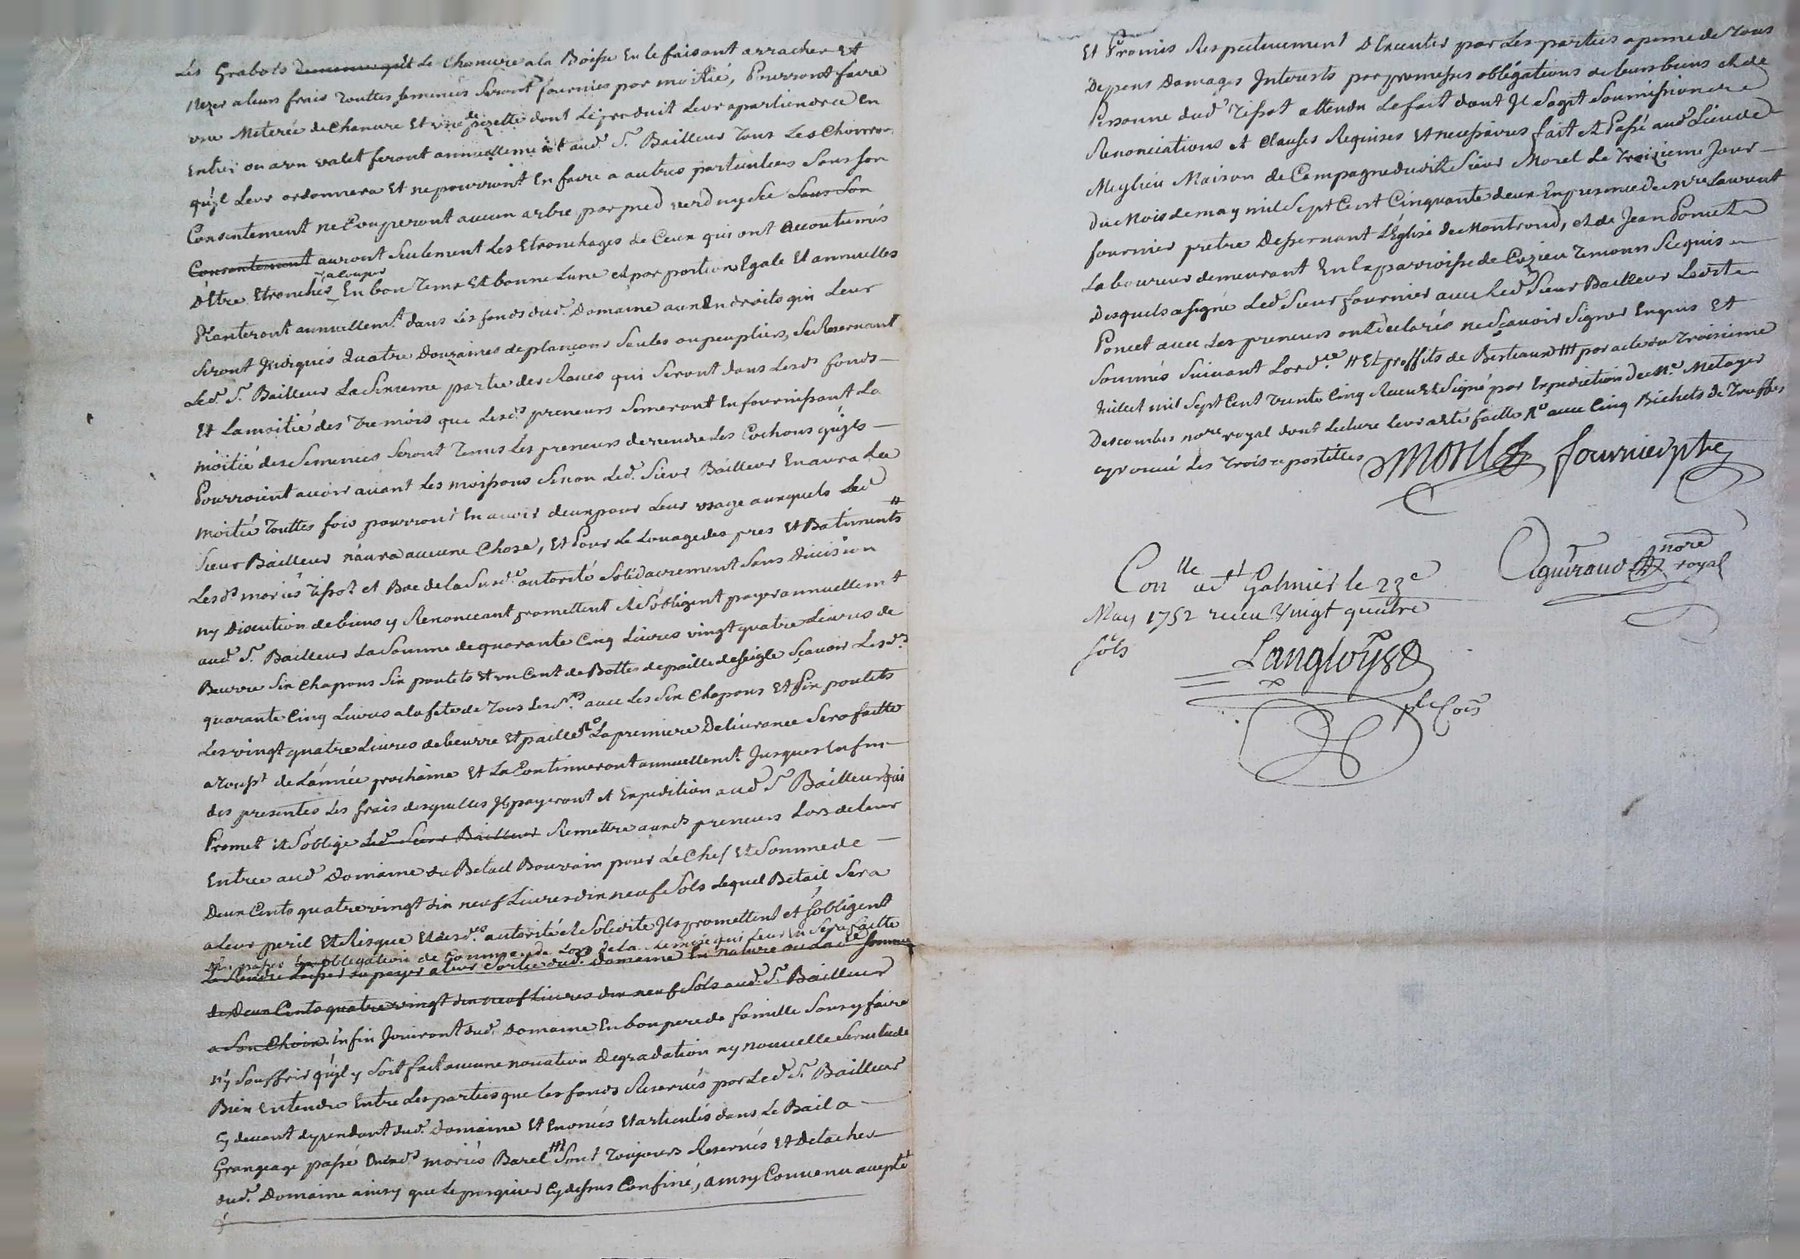 Les Grabots et Le Chanure a la Boisse En le faisant arracher Et
a leurs frais touttes semences Seront fournies par moitié, Pourront faire
une Meterée de Chanure Et une dont Le produit Leur apartiendra En
Entier ou a un valet feront annuellement aud. Sr. Bailleur Tous Les Charrois
qu'jl Leur ordonnera Et ne pourront En faire a autres particuliers Sans son
Consentement ne Couperont aucun arbre par pied verd ny Sec Sans Son
Consentement auront Seulement Les Etronchages de Ceux qui ont accoutumés
D'Etre Etronchés a Couper En bon Tems Et bonne Lune et par portion Egale Et annuelles
Planteront annuellemt. dans Les fonds dud. Domaine aux Endroits qui Leur
Seront Jndiqués Quatre Douzaines de plançons Saules ou peupliers, Se Reservant
Led. Sr. Bailleur La Sixieme partie des Raves qui Seront dans Lesds. fonds
Et La moitié des Tremois que Lesds. preneurs Semeront En fournissant La
moitié des Semences Seront Tenus Les preneurs de rendre Les Cochons qu'jls
Pourroient avoir avant Les moissons Sinon Led. Sieur Bailleur En aura La
moitié Touttes fois pourront En avoir deux pour Leur usage auxquels Led.
Sieur Bailleur n'aura aucune Chose, Et Pour Le Louage des pres Et Batiments
Lesds. mariés Tissot et Bac de la Susde. autorité Solidairement Sans division
ny Discution de biens y Renonceant promettent et S'obligent payer annuellemt
aud. Sr. Bailleur La Somme de quarante Cinq Livres vingt quatre Livres de
Beurre Six Chapons Six poulets Et un Cent de Bottes de paille de Seigle Sçavoir Lesd.
quarante Cinq Livres a la fete de Tous Les Sts. avec Les Six Chapons Et Six poulets
Les vingt quatre Livres de beurre Et paille La premiere Delivrance Sera faitte
a Tousst. de L'année prochaine Et La Continueront annuellemt. Jusques La fin
des presentes Les frais desquelles Jls payeront et Expedition aud. Sr. Bailleur qui
Promet et S'oblige Led. Sieur Bailleur Remettre auxds. preneurs Lors de leur
Entrée aud. Domaine du Betail Bouvain pour Le Chef Et Somme de
Deux Cents quatre vingt dix neuf Livres dix neuf Sols Lequel Betail Sera
a Leur peril Et Risque autorité et Solidité Jls promettent et S'obligent
obligation de Lors de la remise qui Leur En Sera faitte
a leur Sortie dud. Domaine En nature ou Lade. Somme
de Deux Cents quatre vingt dix neuf Livres dix neuf Sols aud. Sr. Bailleur
a Son Choix. Enfin Jouiront dud. Domaine En bon pere de famille Sans y faire
n'y Souffrir qu'jl y Soit fait aucune novation Degradation ny nouvelle Servitude
Bien Entendu Entre Les parties que Les fonds Reservés par Led. Sr. Bailleur
Cy devant dependant dud. Domaine Et Enoncés Et articulés dans Le Bail a
Grangeage passé mariés Barel Sont Toujours Reservés Et Detachés
dud. Domaine ainsy que Le Cydessus Confiné, ainsy Convenu accepté
Et Promis Respectivement D'Executer par Les parties a peine de Tous
Depens Damages Jnterests par promesses obligations de leurs biens et de
Personne dud. Tissot attendu Le fait dont Jl S'agit Soumissions
Renonciations et Clauses Requises Et necessaires fait Et Passé aud. Lieu de
Meylieu Maison de Campagne dudit Sieur Morel Le Troizieme Jour
Du Mois de may mil Sept Cent Cinquante deux En presence de Mre Laurent
fournier pretre Desservant L'Église de Montrond, et de Jean Poncet
Laboureur demeurant En la parroisse de Cuzieu Temoins Requis
Desquels a signé Led. Sieur fournier avec Led. Sieur Bailleur
Poncet avec Les preneurs ont declarés ne Sçavoir Signer Enquis Et
Sommés Suivant Lordce. # Et proffits de Bestiaux ### par acte du Troisieme
Juillet mil Sept Cent Trente Cinq Receu Et Signé par Expedition de Me. Metayer
Descombes nore. royal dont Lecture Leur a été faitte avec Cinq Bichets de Truffes
approuvé Les Trois apostilles Morel fournier ptre
Aguiraud nore royal
Conlle a St Galmier le 23e
May 1752 reçu Vingt quatre
sols
Langloys